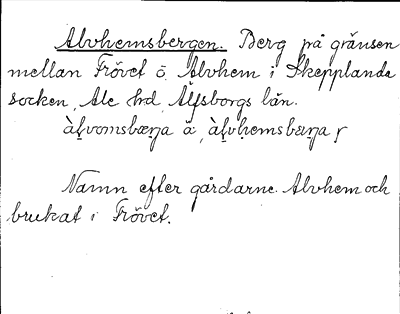 Alvhemsbergen. Berg på gränsen
mellan Frövet o. Alvhem i Skepplanda
socken, Ale hd, Älfsborgs län.
Namn efter gårdarne Alvhem och
brukat i Frövet.